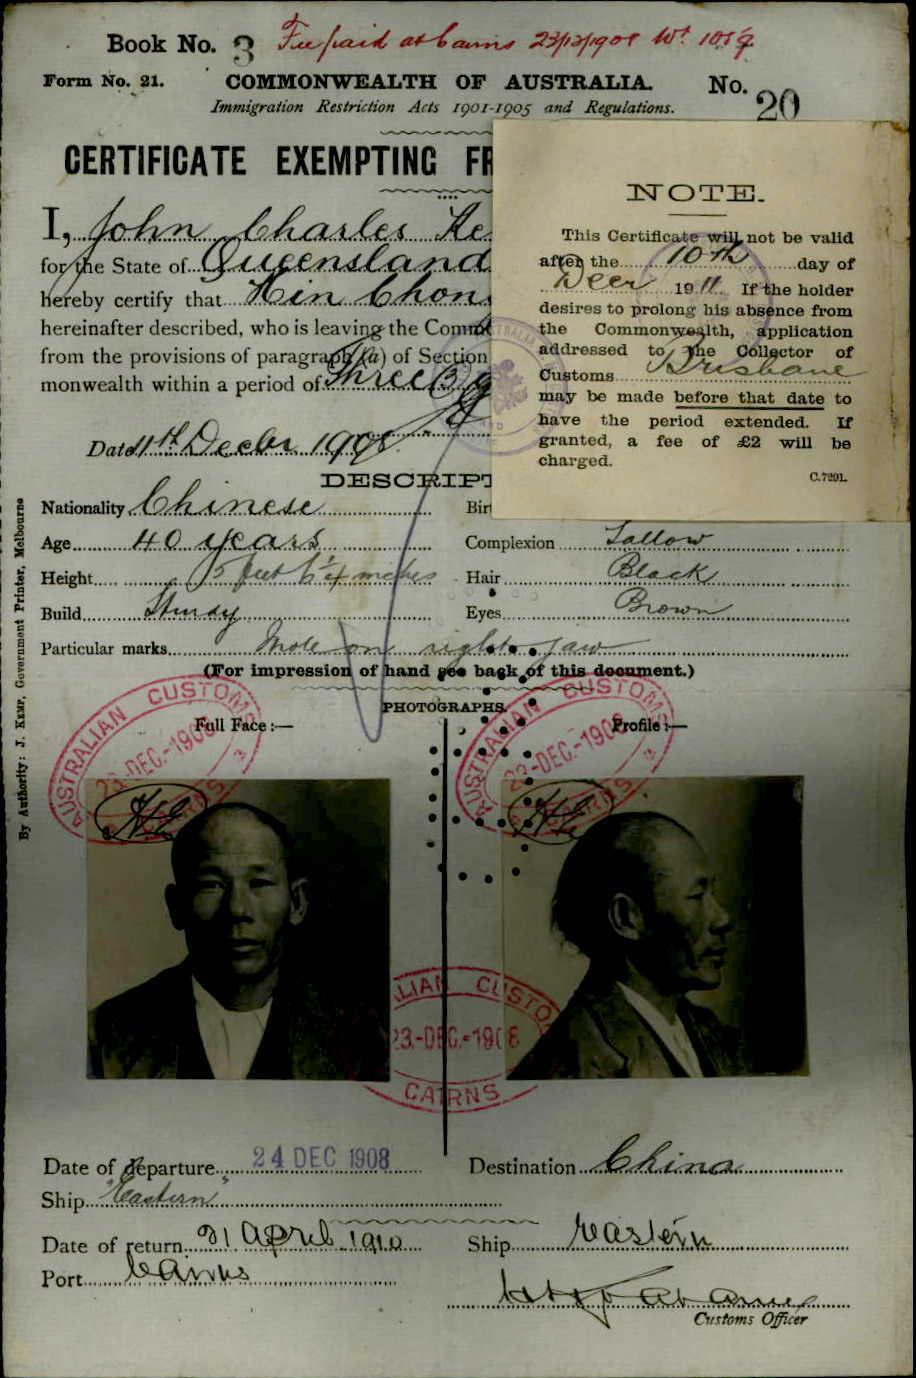 Book No. 3 Fee paid at Cairns 23/12/1908 No. 20
Form No. 21. COMMONWEALTH OF AUSTRALIA.
Immigration Restriction Acts 1901-1905 and Regulations.
CERTIFICATE EXEMPTING FR
I, John Charles Ke
for the State of Queensland
hereby certify that Hin Chon
hereinafter described, who is leaving the Comm
from the provisions of paragraph (a) of Section
monwealth within a period of Three (3) y
Date 11th Decbr 1908
NOTE.
This Certificate will not be valid
after the 10th day of
Decr 1911 If the holder
desires to prolong his absence from
the Commonwealth, application
addressed to the Collector of
Customs Brisbane
may be made before that date to
have the period extended. If
granted, a fee of £2 will be
charged.
C.7291.
DESCRIPT
Nationality Chinese Birt
Age 40 years Complexion Sallow
Height 5 feet 6 1/4 inches Hair Black
Build Sturdy Eyes Brown
Particular marks Mole on right jaw
(For impression of hand see back of this document.)
PHOTOGRAPHS.
Full Face :— Profile :—
AUSTRALIAN CUSTOMS
23-DEC.-1908
CAIRNS
AUSTRALIAN CUSTOMS
23-DEC.-1908
LIAN CUSTO
23.-DEC.-1908
CAIRNS
Date of departure 24 DEC 1908 Destination China
Ship "Eastern"
Date of return 21 April 1910 Ship Eastern
Port Cairns
Customs Officer
By Authority: J. Kemp, Government Printer, Melbourne